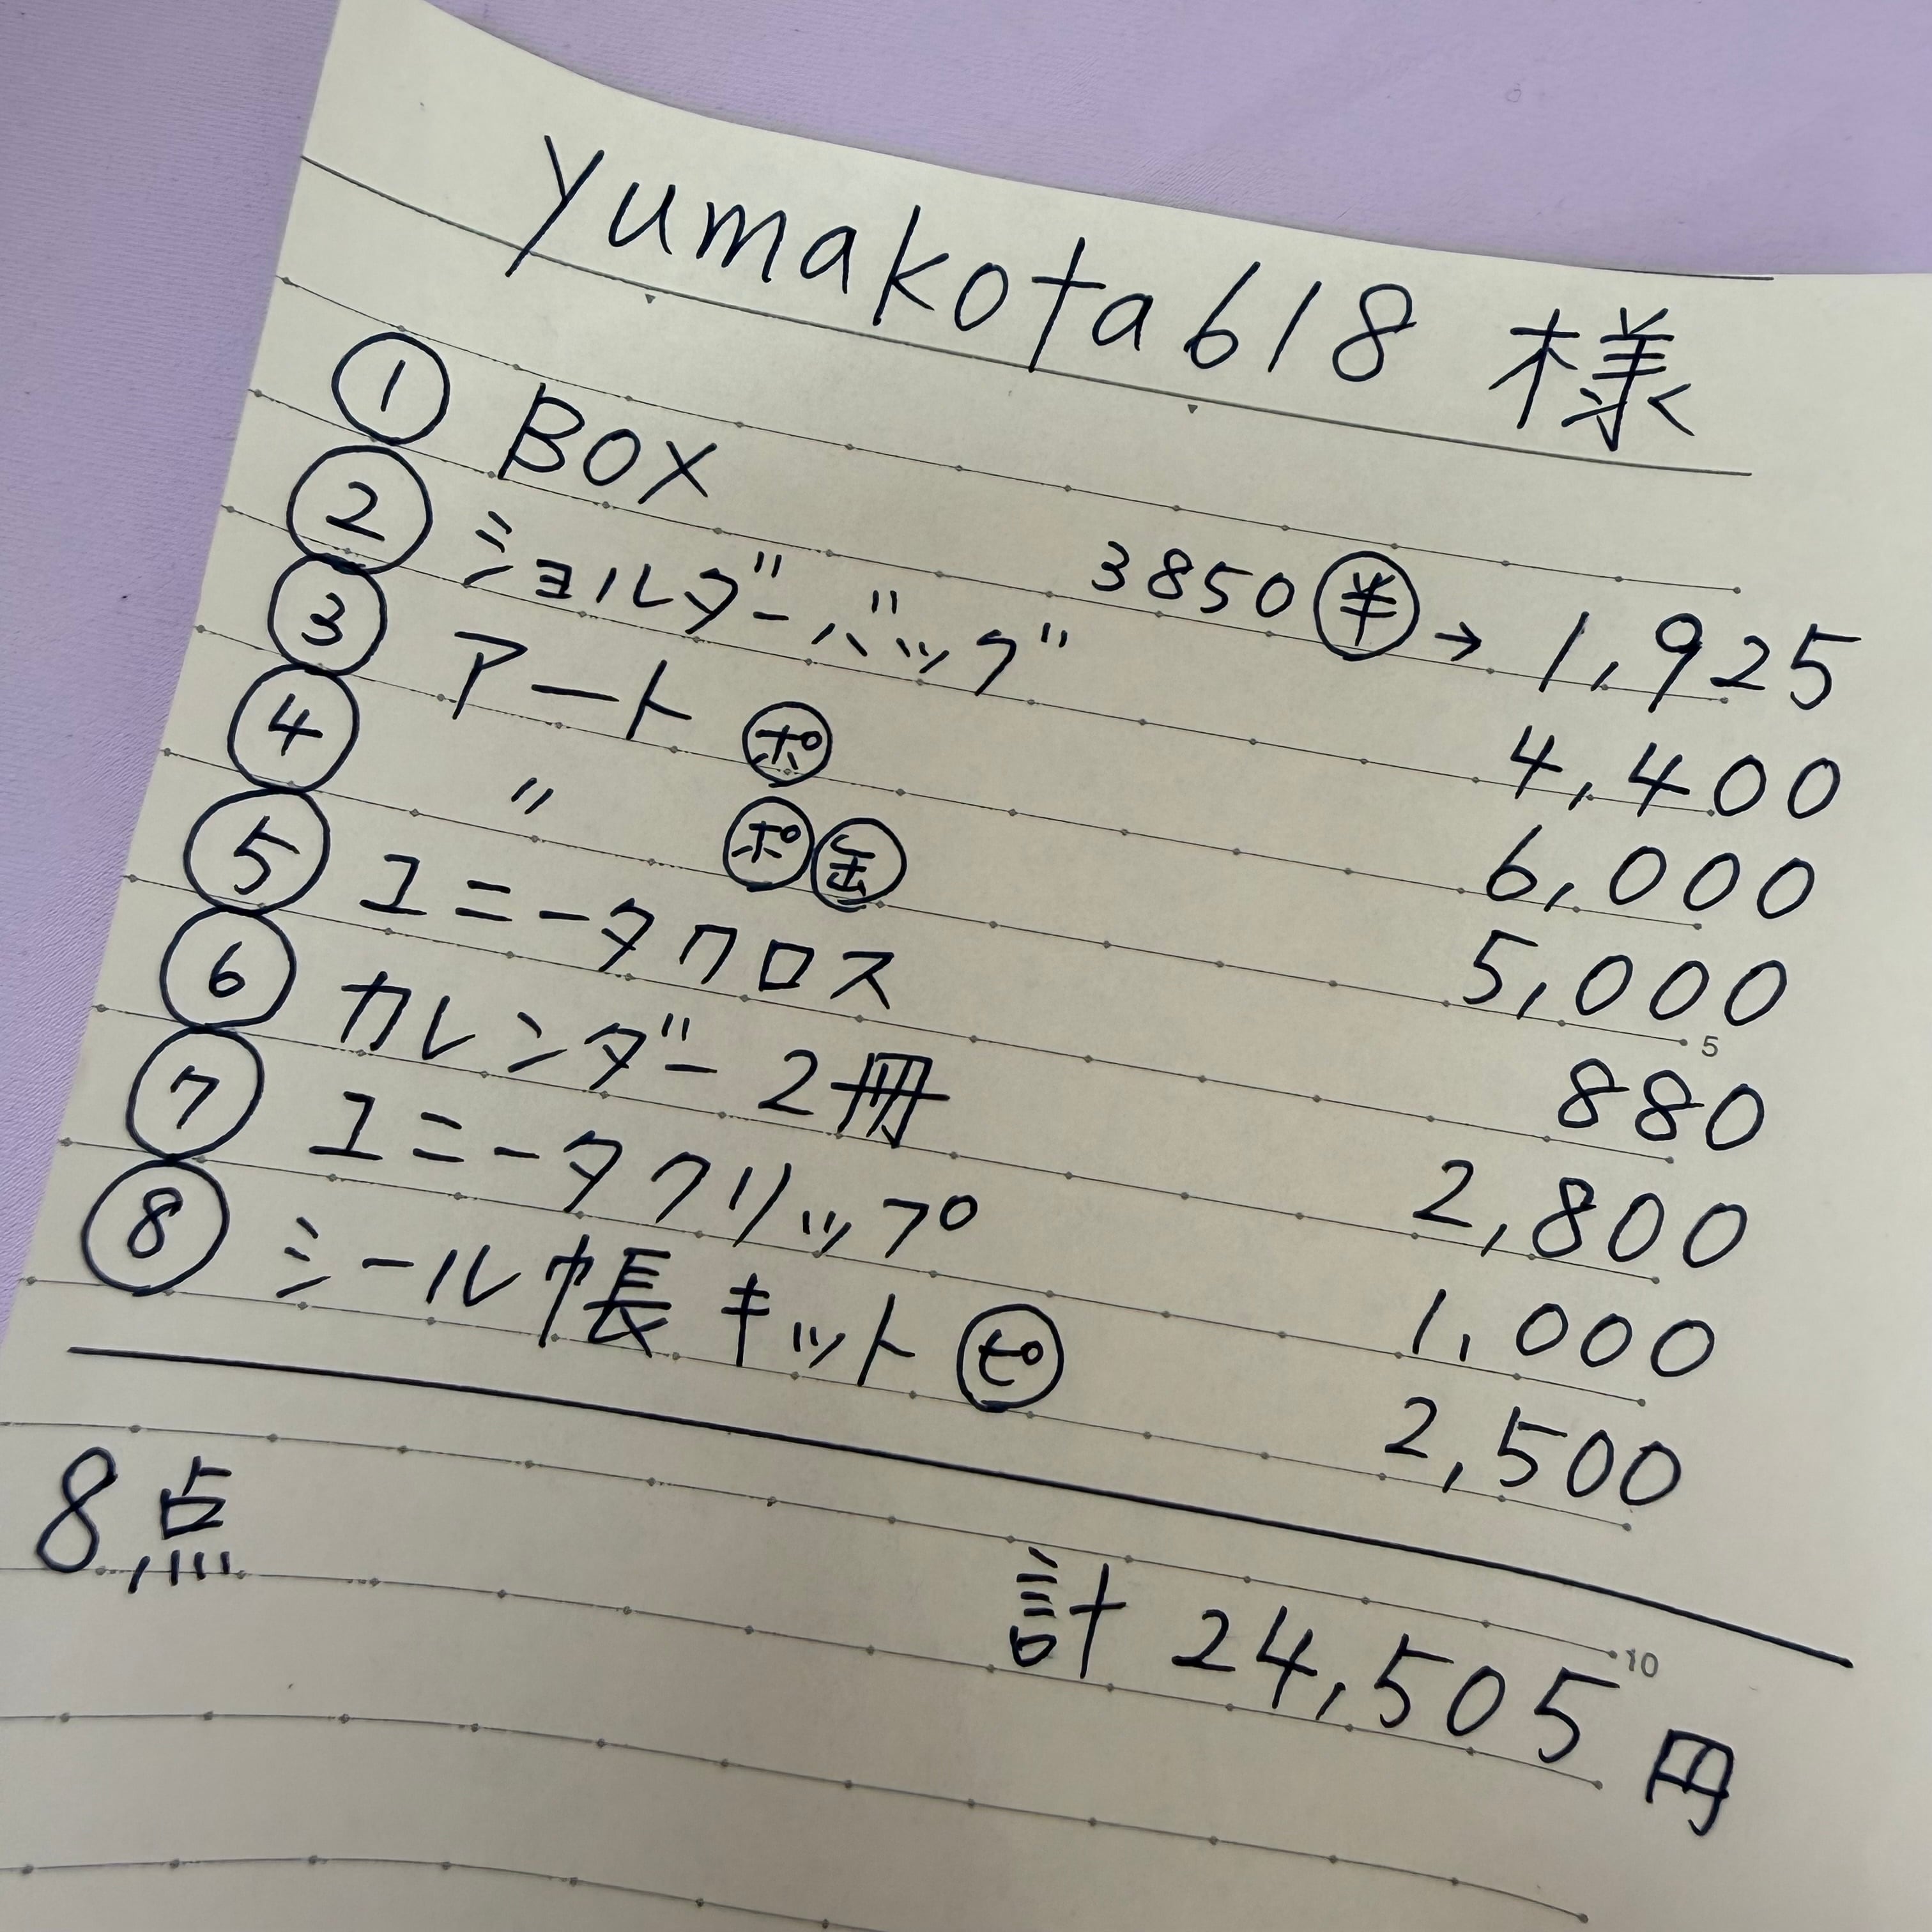 yumakota618 様
① BOX 3850 半 → 1,925
② ショルダーバッグ 4,400
③ アート ポ 6,000
④ 〃 ポ 缶 5,000
⑤ ユニータクロス 880
⑥ カレンダー 2冊 2,800
⑦ ユニータクリップ 1,000
⑧ シール帳キット ピ 2,500
5
8点
10
計 24,505円